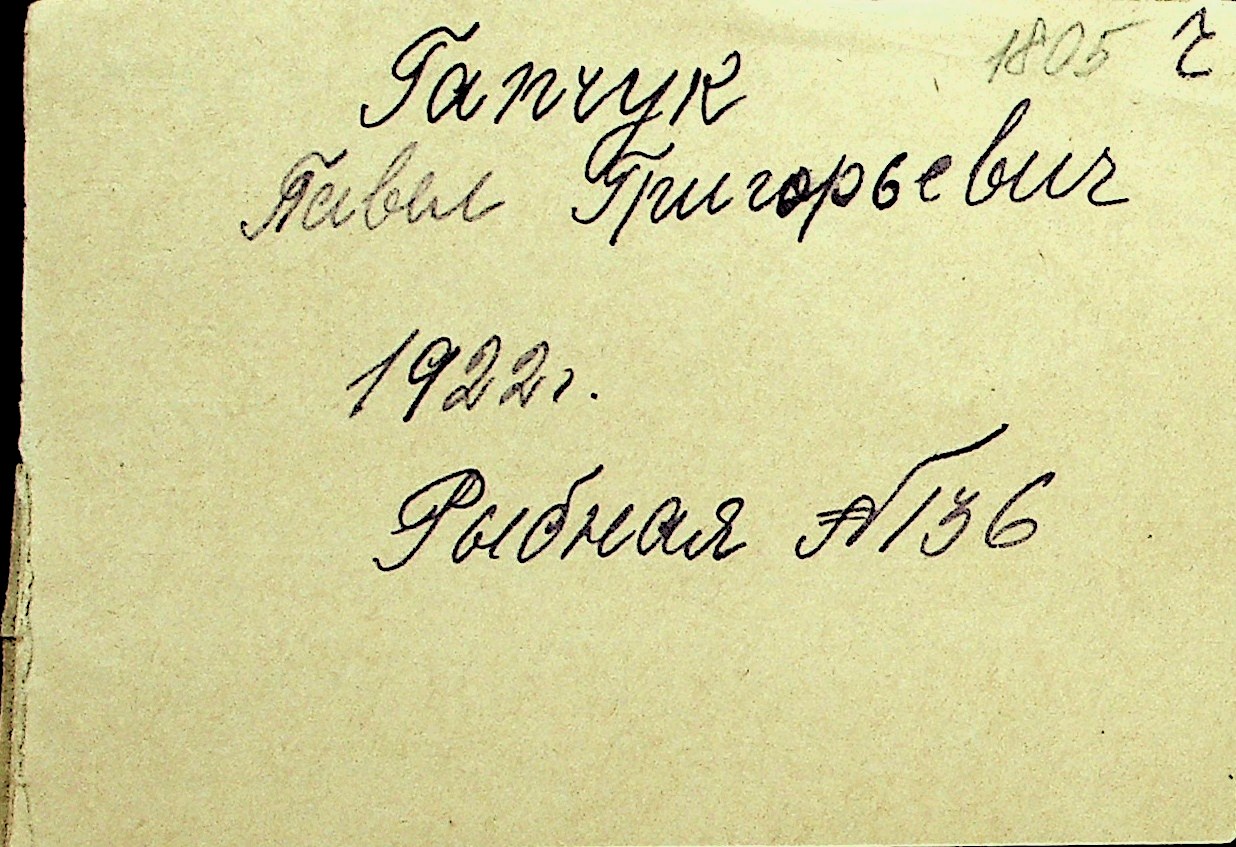 1805 ч
Гапчук
Павел Григорьевич
1922г.
Рыбная №136